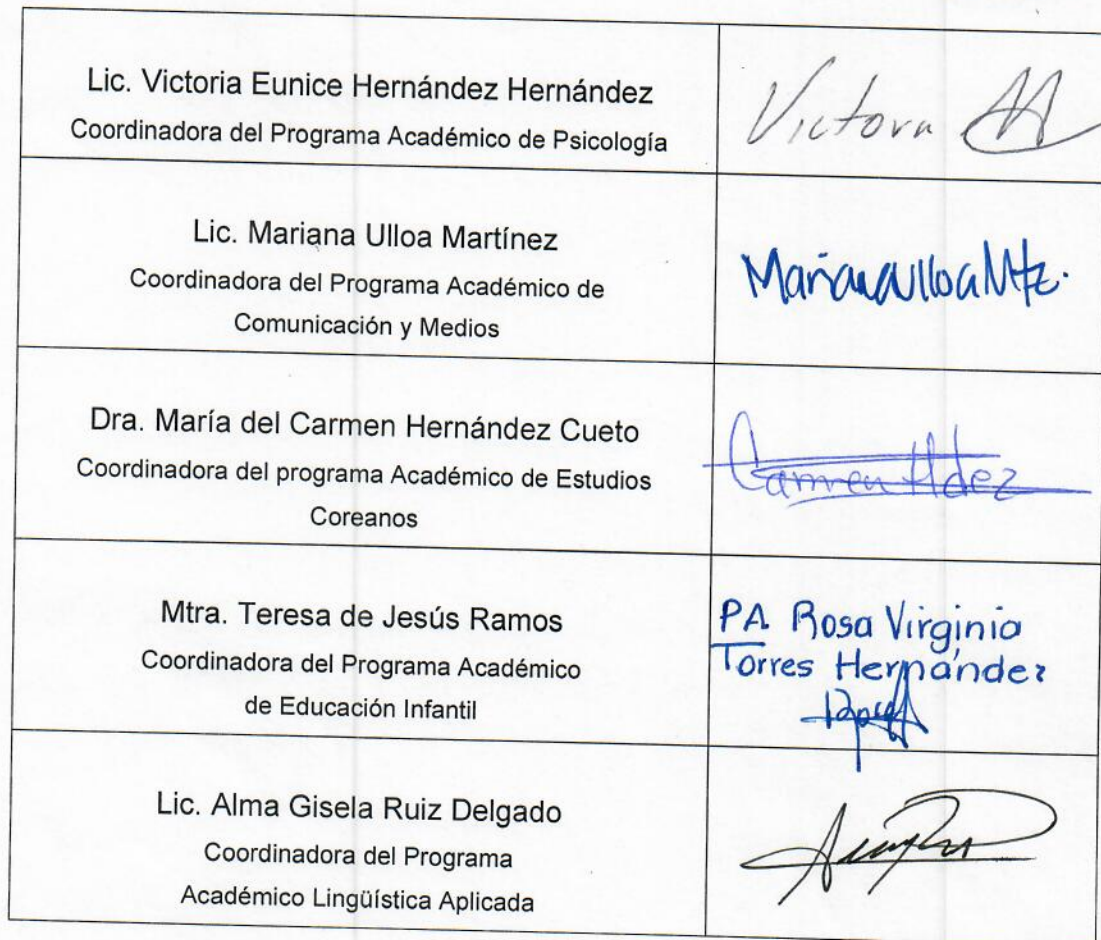 Lic. Victoria Eunice Hernández Hernández
Coordinadora del Programa Académico de Psicología
Victoria
Lic. Mariana Ulloa Martínez
Coordinadora del Programa Académico de
Comunicación y Medios
Mariana Ulloa Mtz.
Dra. María del Carmen Hernández Cueto
Coordinadora del programa Académico de Estudios
Coreanos
Carmen Hdez
Mtra. Teresa de Jesús Ramos
Coordinadora del Programa Académico
de Educación Infantil
PA Rosa Virginia
Torres Hernández
Lic. Alma Gisela Ruiz Delgado
Coordinadora del Programa
Académico Lingüística Aplicada